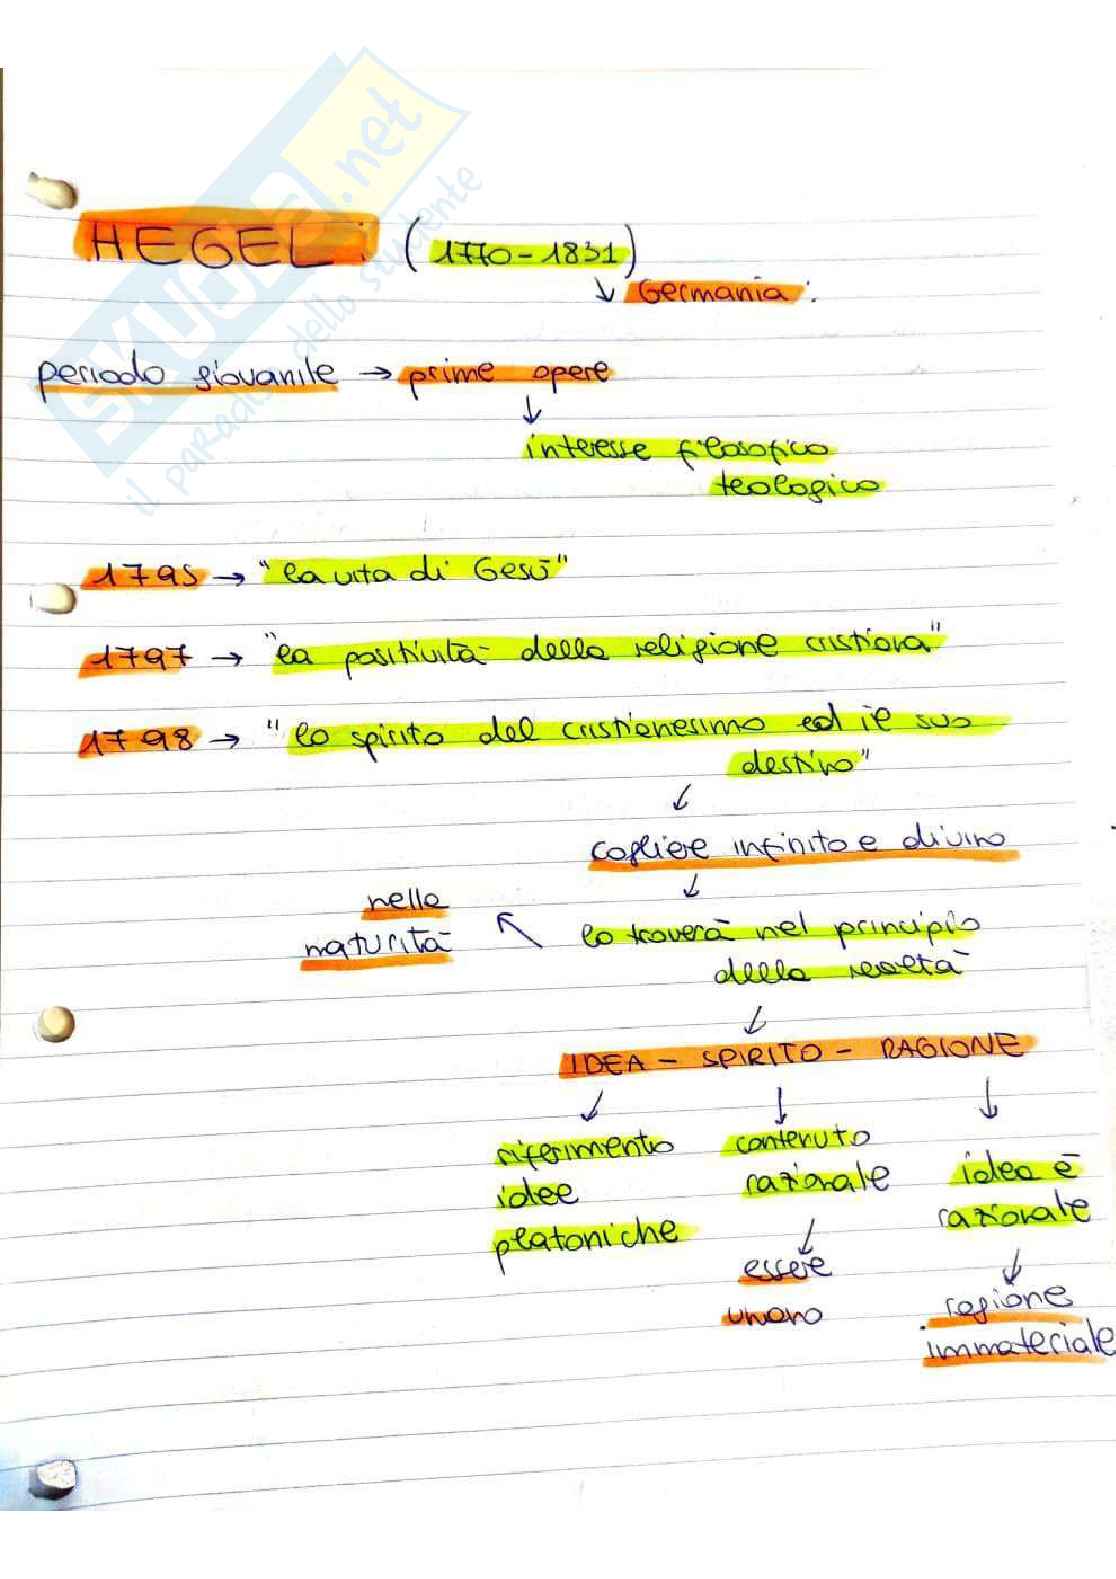 SKUOLA.net
il paradiso dello studente
HEGEL: (1770-1831)
↓ Germania:
periodo giovanile → prime opere
↓
interesse filosofico
teologico
1795 → "la vita di Gesù"
1797 → "la positività della religione cristiana"
1798 → "lo spirito del cristianesimo ed il suo
destino"
↓
cogliere infinito e divino
↓
nella
maturità
↖ lo troverà nel principio
della realtà
↓
IDEA - SPIRITO - RAGIONE
↓ ↓ ↓
riferimento
idee
platoniche
contenuto
razionale
↓
essere
umano
idea è
razionale
↓
ragione
immateriale